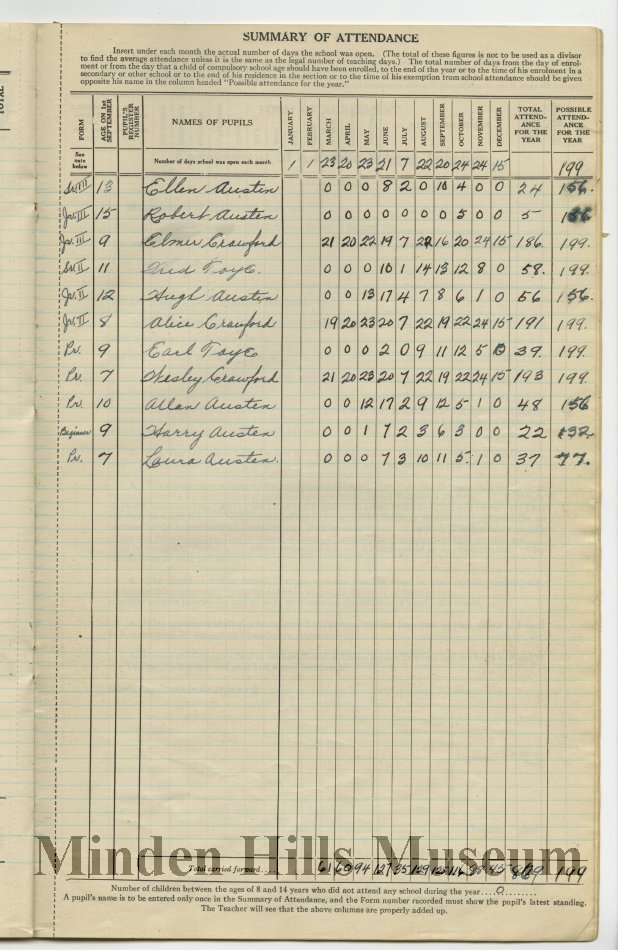 SUMMARY OF ATTENDANCE
Insert under each month the actual number of days the school was open. (The total of these figures is not to be used as a divisor
to find the average attendance unless it is the same as the legal number of teaching days.) The total number of days from the day of enrol-
ment or from the day that a child of compulsory school age should have been enrolled, to the end of the year or to the time of his enrolment in a
secondary or other school or to the end of his residence in the section or to the time of his exemption from school attendance should be given
opposite his name in the column headed "Possible attendance for the year."
TOTAL
FORM AGE ON 1st SEPTEMBER PUPIL'S REGISTER NUMBER NAMES OF PUPILS JANUARY FEBRUARY MARCH APRIL MAY JUNE JULY AUGUST SEPTEMBER OCTOBER NOVEMBER DECEMBER TOTAL ATTEND-ANCE FOR THE YEAR POSSIBLE ATTEND-ANCE FOR THE YEAR
See note below Number of days school was open each month 1 1 23 20 23 21 7 22 20 24 24 15 199
Sr. III 13 Ellen Austen 0 0 0 8 2 0 10 4 0 0 24 156.
Jr. III 15 Robert Austen 0 0 0 0 0 0 0 5 0 0 5 156
Jr. III 9 Elmer Crawford 21 20 22 19 7 22 16 20 24 15 186. 199.
Sr. II 11 Fred Toye. 0 0 0 10 1 14 13 12 8 0 58. 199.
Jr. II 12 Hugh Austen 0 0 13 17 4 7 8 6 1 0 56 156.
Jr. II 8 Alice Crawford 19 20 23 20 7 22 19 22 24 15 191 199.
Pr. 9 Earl Toye 0 0 0 2 0 9 11 12 5 0 39. 199.
Pr. 7 Wesley Crawford 21 20 23 20 7 22 19 22 24 15 193 199.
Pr. 10 Allan Austen 0 0 12 17 2 9 12 5 1 0 48 156
Beginner 9 Harry Austen 0 0 1 7 2 3 6 3 0 0 22 132.
Pr. 7 Laura Austen. 0 0 0 7 3 10 11 5 1 0 37 77.
Minden Hills Museum
Total carried forward.... 61 60 94 127 35 129 125 116 45 199
Number of children between the ages of 8 and 14 years who did not attend any school during the year....0........
A pupil's name is to be entered only once in the Summary of Attendance, and the Form number recorded must show the pupil's latest standing.
The Teacher will see that the above columns are properly added up.